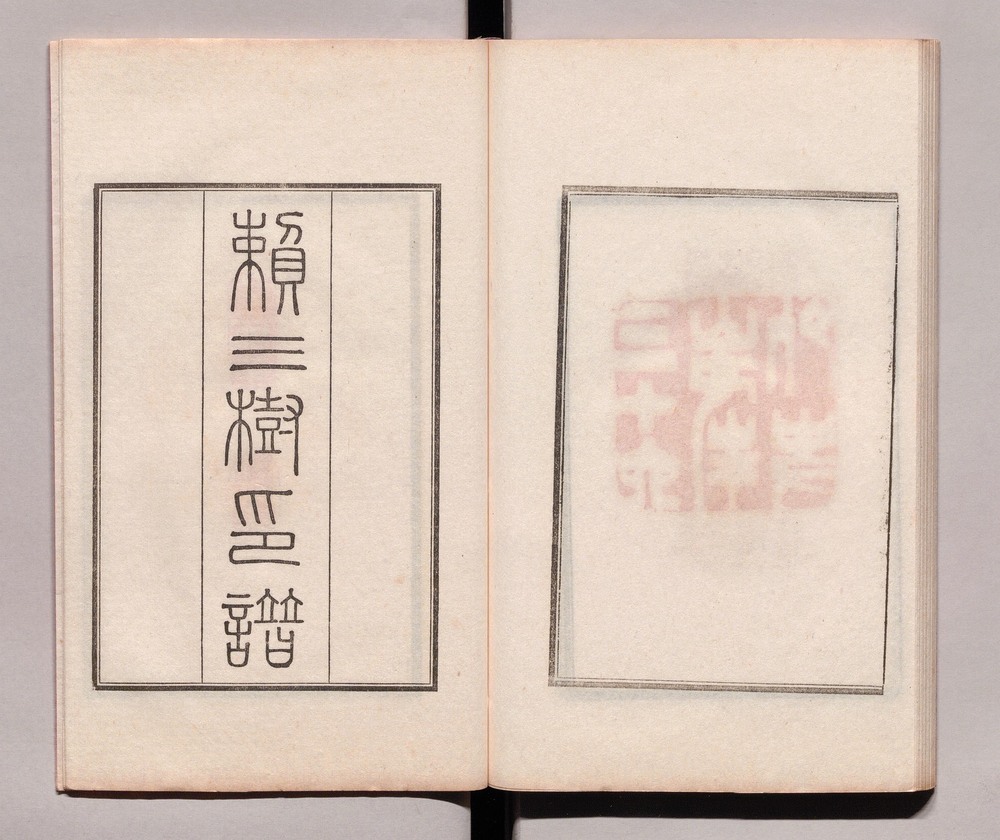 賴三樹印譜